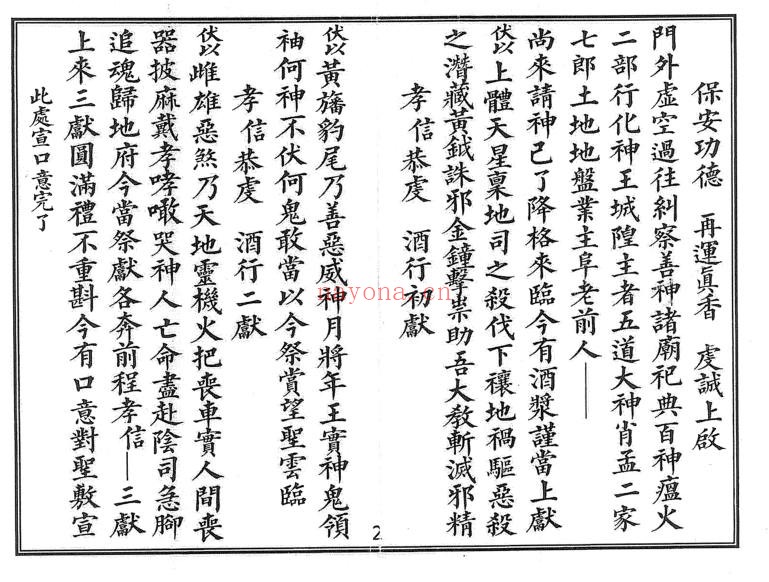 保安功德　再運眞香　虔誠上啟
門外虛空過往糾察善神諸廟祀典百神瘟火
二部行化神王城隍主者五道大神肖孟二家
七郎土地地盤業主阜老前人——
尚來請神已了降格來臨今有酒漿謹當上獻
伏以上體天星稟地司之殺伐下禳地禍驅惡殺
之潛藏黃鉞誅邪金鐘擊祟助吾大教斬滅邪精
孝信恭虔　酒行初獻
伏以黃旛豹尾乃善惡威神月將年王實神鬼領
袖何神不伏何鬼敢當以今祭賞望聖雲臨
孝信恭虔　酒行二獻
伏以雌雄惡煞乃天地靈機火把喪車實人間喪
器披麻戴孝哮噉哭神人亡命盡赴陰司急腳
追魂歸地府今當祭獻各奔前程孝信——三獻
上來三獻圓滿禮不重斟今有口意對聖敷宣
此處宣口意完了
2
nayona.cn